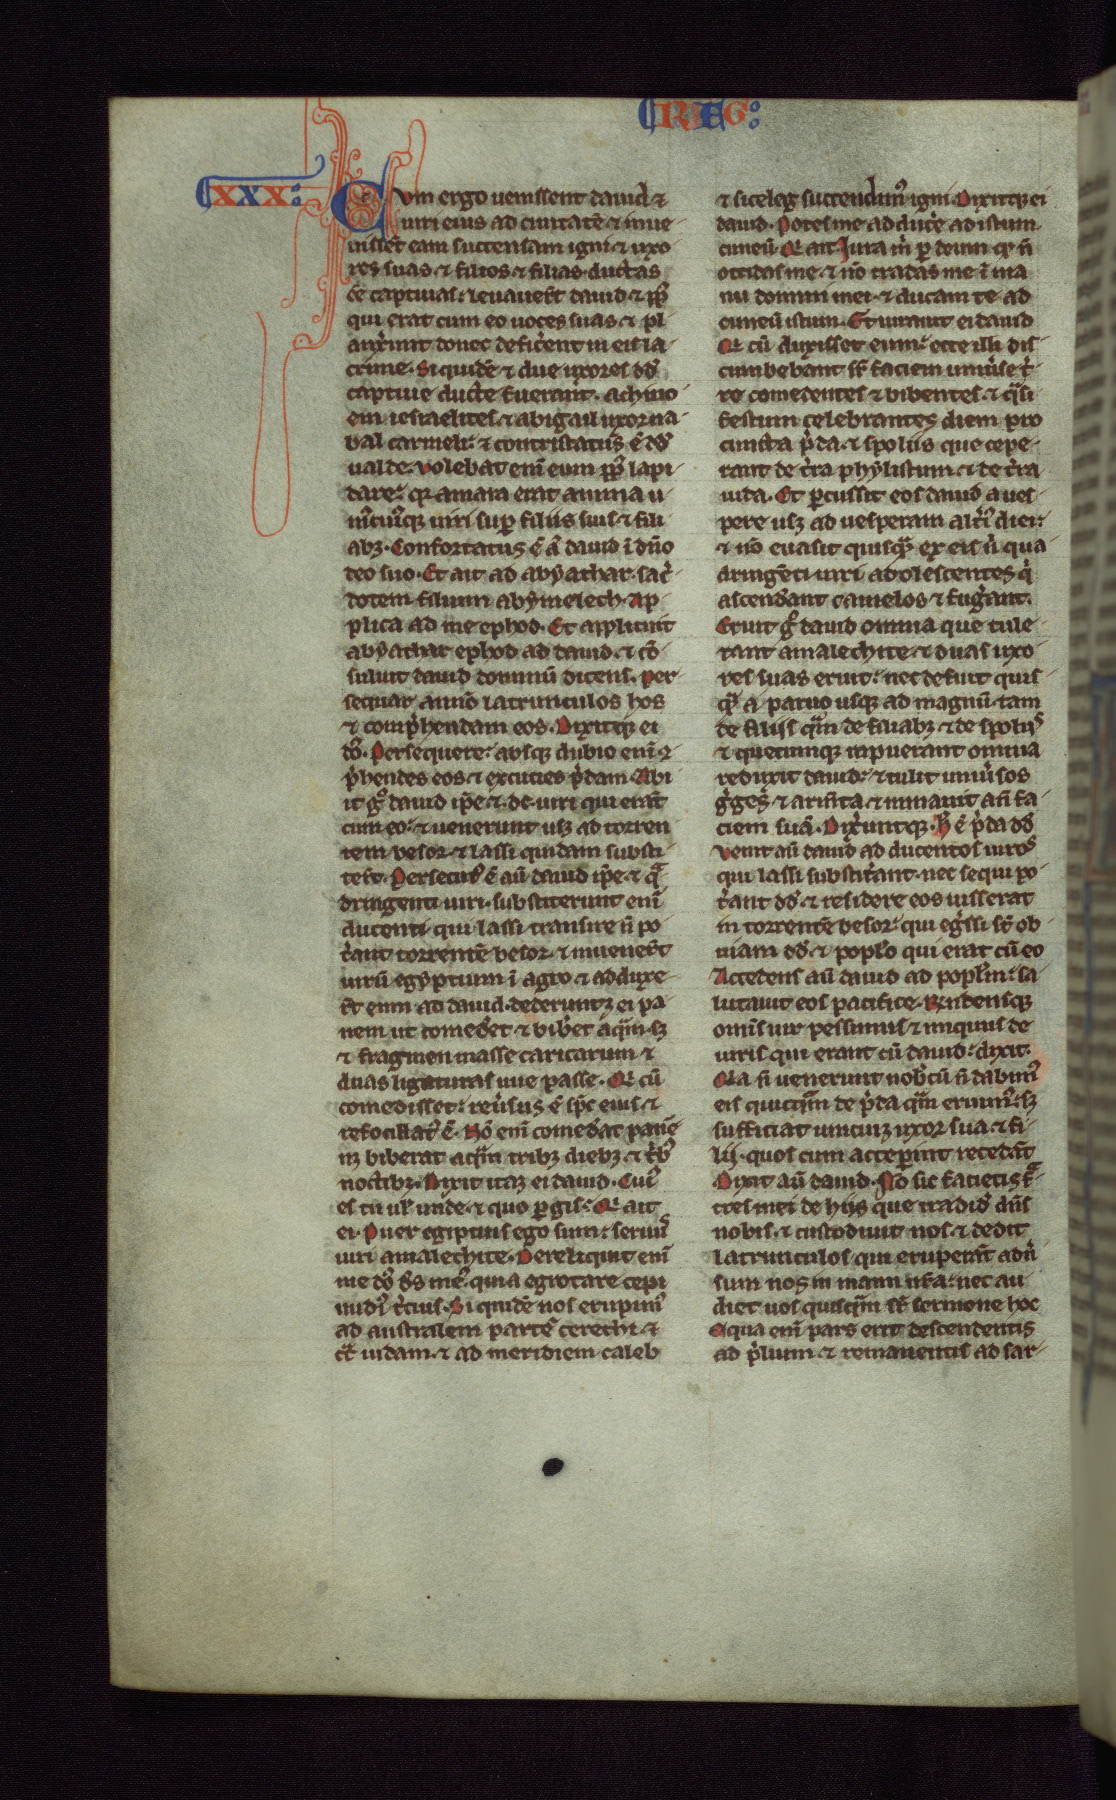 REG
XXX
Cvm ergo uenissent dauid &
uiri eius ad ciuitatē & inue-
nissēt eam succensam igni & uxo-
res suas & filios & filias ductas
ēē captiuas: leuauerūt dauid & ipłs
qui erat cum eo uoces suas & pl
anxerunt donec deficerent in eis la-
crime. Siquidē & due uxores dd
captiue ducte fuerant. achino-
em iesraelites & abigail uxor na-
bal carmeli: & contristatus ē dd
ualde. volebat enī eum ppłs lapi-
dare: qr amara erat anima u-
niuscuiusqꝫ uiri sup filiis suis & fili-
abꝫ. Confortatus ē a dauid ī dño
deo suo. Et ait ad abyathar sacer-
dotem filium abymelech. Ap-
plica ad me ephod. Et applicuit
abyathar ephod ad dauid. & cō-
suluit dauid dominū dicens. Per-
sequar annō latrunculos hos
& comprehendam eos. Dixitqꝫ ei
dōs. Persequere: absqꝫ dubio enī 9-
prehendes eos & excuties predam. Abi
it g dauid ipe & dc. uiri qui erāt
cum eo: & uenerunt usqꝫ ad torren-
tem besor & lassi quidam substi-
terūt. Persecutus ē aū dauid ipe & qua
dringenti uiri. substiterunt enī
ducenti qui lassi transire ñ po-
terant torrentē besor. & inuenerūt
uirū egyptium ī agro & adduxe-
rūt eum ad dauid. dederuntqꝫ ei pa-
nem ut comederet & biberet aquam. sꝫ
& fragmen masse caricarum &
duas ligaturas uue passe. Qr cū
comedisset: reuersus ē spc eius &
refocillatus ē. Nō enī comederat panē
nꝫ biberat aquam tribꝫ diebꝫ & tribꝫ
noctibꝫ. Dixit itaqꝫ ei dauid. Cuius
es tu uł unde. & quo pergis: Qr ait
ei. Puer egiptius ego sum: seruus
uiri amalechite. Dereliquit enī
me dōs ds meus. quia egrotare cepi
nudius tercius. Si quidē nos erupimus
ad australem partē cerethi &
cōt iudam. & ad meridiem caleb
& siceleg succendimus igni. Dixitqꝫ ei
dauid. Potes me ad ducere ad istum
cuneū. Qr ait Iura m p deum qr ñ
occidas me. & nō tradas me ī ma
nu domini mei. & ducam te ad
cuneū istum. Et iurauit ei dauid
Qr cū duxisset eum: ecce illi dis-
cumbebant sr faciem uniuerse ter-
re comedentes & bibentes. & quasi
festum celebrantes diem pro
cuncta preda. & spoliis que cepe-
rant de terra phylistium. & de terra
iuda. Et percussit eos dauid a ues-
pere usqꝫ ad uesperam alterius diei:
& nō euasit quisquam ex eis nisi qua-
dringēti uiri adolescentes qui
ascenderant camelos & fugerant.
Eruit g dauid omnia que tule-
rant amalechite. & duas uxo-
res suas eruit: nec defuit quis
quam a paruo usqꝫ ad magnū. tam
de filiis quam de filiabꝫ & de spoliis
& quecumqꝫ rapuerant omnia
reduxit dauid: & tulit uniuersos
greges & armēta. & minauit añ fa-
ciem suā. Dixeruntqꝫ. Hec ē preda dd
Venit aū dauid ad ducentos uiros
qui lassi substiterant. nec sequi po-
terant dd. & residere eos iusserat
in torrentē besor: qui egressi st ob-
uiam dd. & popło qui erat cū eo
Accedens aū dauid ad popłm: sa-
lutauit eos pacifice. Rndensqꝫ
omīs uir pessimus & iniquus de
uiris qui erant cū dauid: dixit.
Quia ñ venerunt nobcū ñ dabimus
eis quicquam de preda quam eruimus: sꝫ
sufficiat unicuiqꝫ uxor sua & fi-
lij. quos cum acceperint recedāt
Dixit aū dauid. Nō sic facietis fra-
tres mei de hijs que tradidit dñs
nobis. & custodiuit nos. & dedit
latrunculos qui eruperant aduer-
sum nos in manu nra: nec au-
diet uos quisquam sr sermone hoc
Equa enī pars erit descendentis
ad prelium & remanentis ad sar-